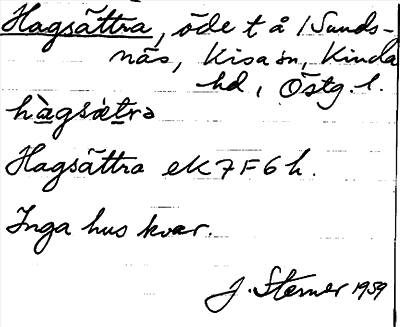 Hagsättra, öde t å 1 Sunds-
näs, Kisa sn, Kinda
hd, Östg. l.
hàgsætrə
Hagsättra ek 7 F 6 h.
Inga hus kvar.
J. Sterner 1959